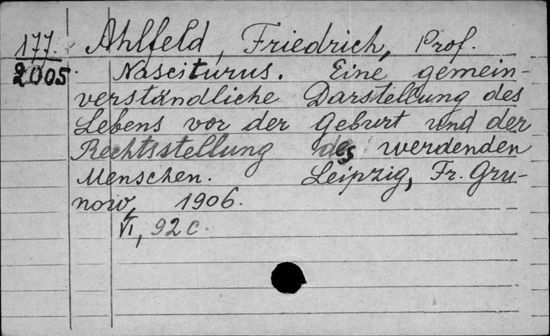 177. Ahlfeld, Friedrich, Prof.
2005. Nasciturus. Eine gemein-
verständliche Darstellung des
Lebens vor der Geburt und der
Rechtsstellung des werdenden
Menschen. Leipzig, Fr. Gru-
now, 1906.
VI, 92 c.